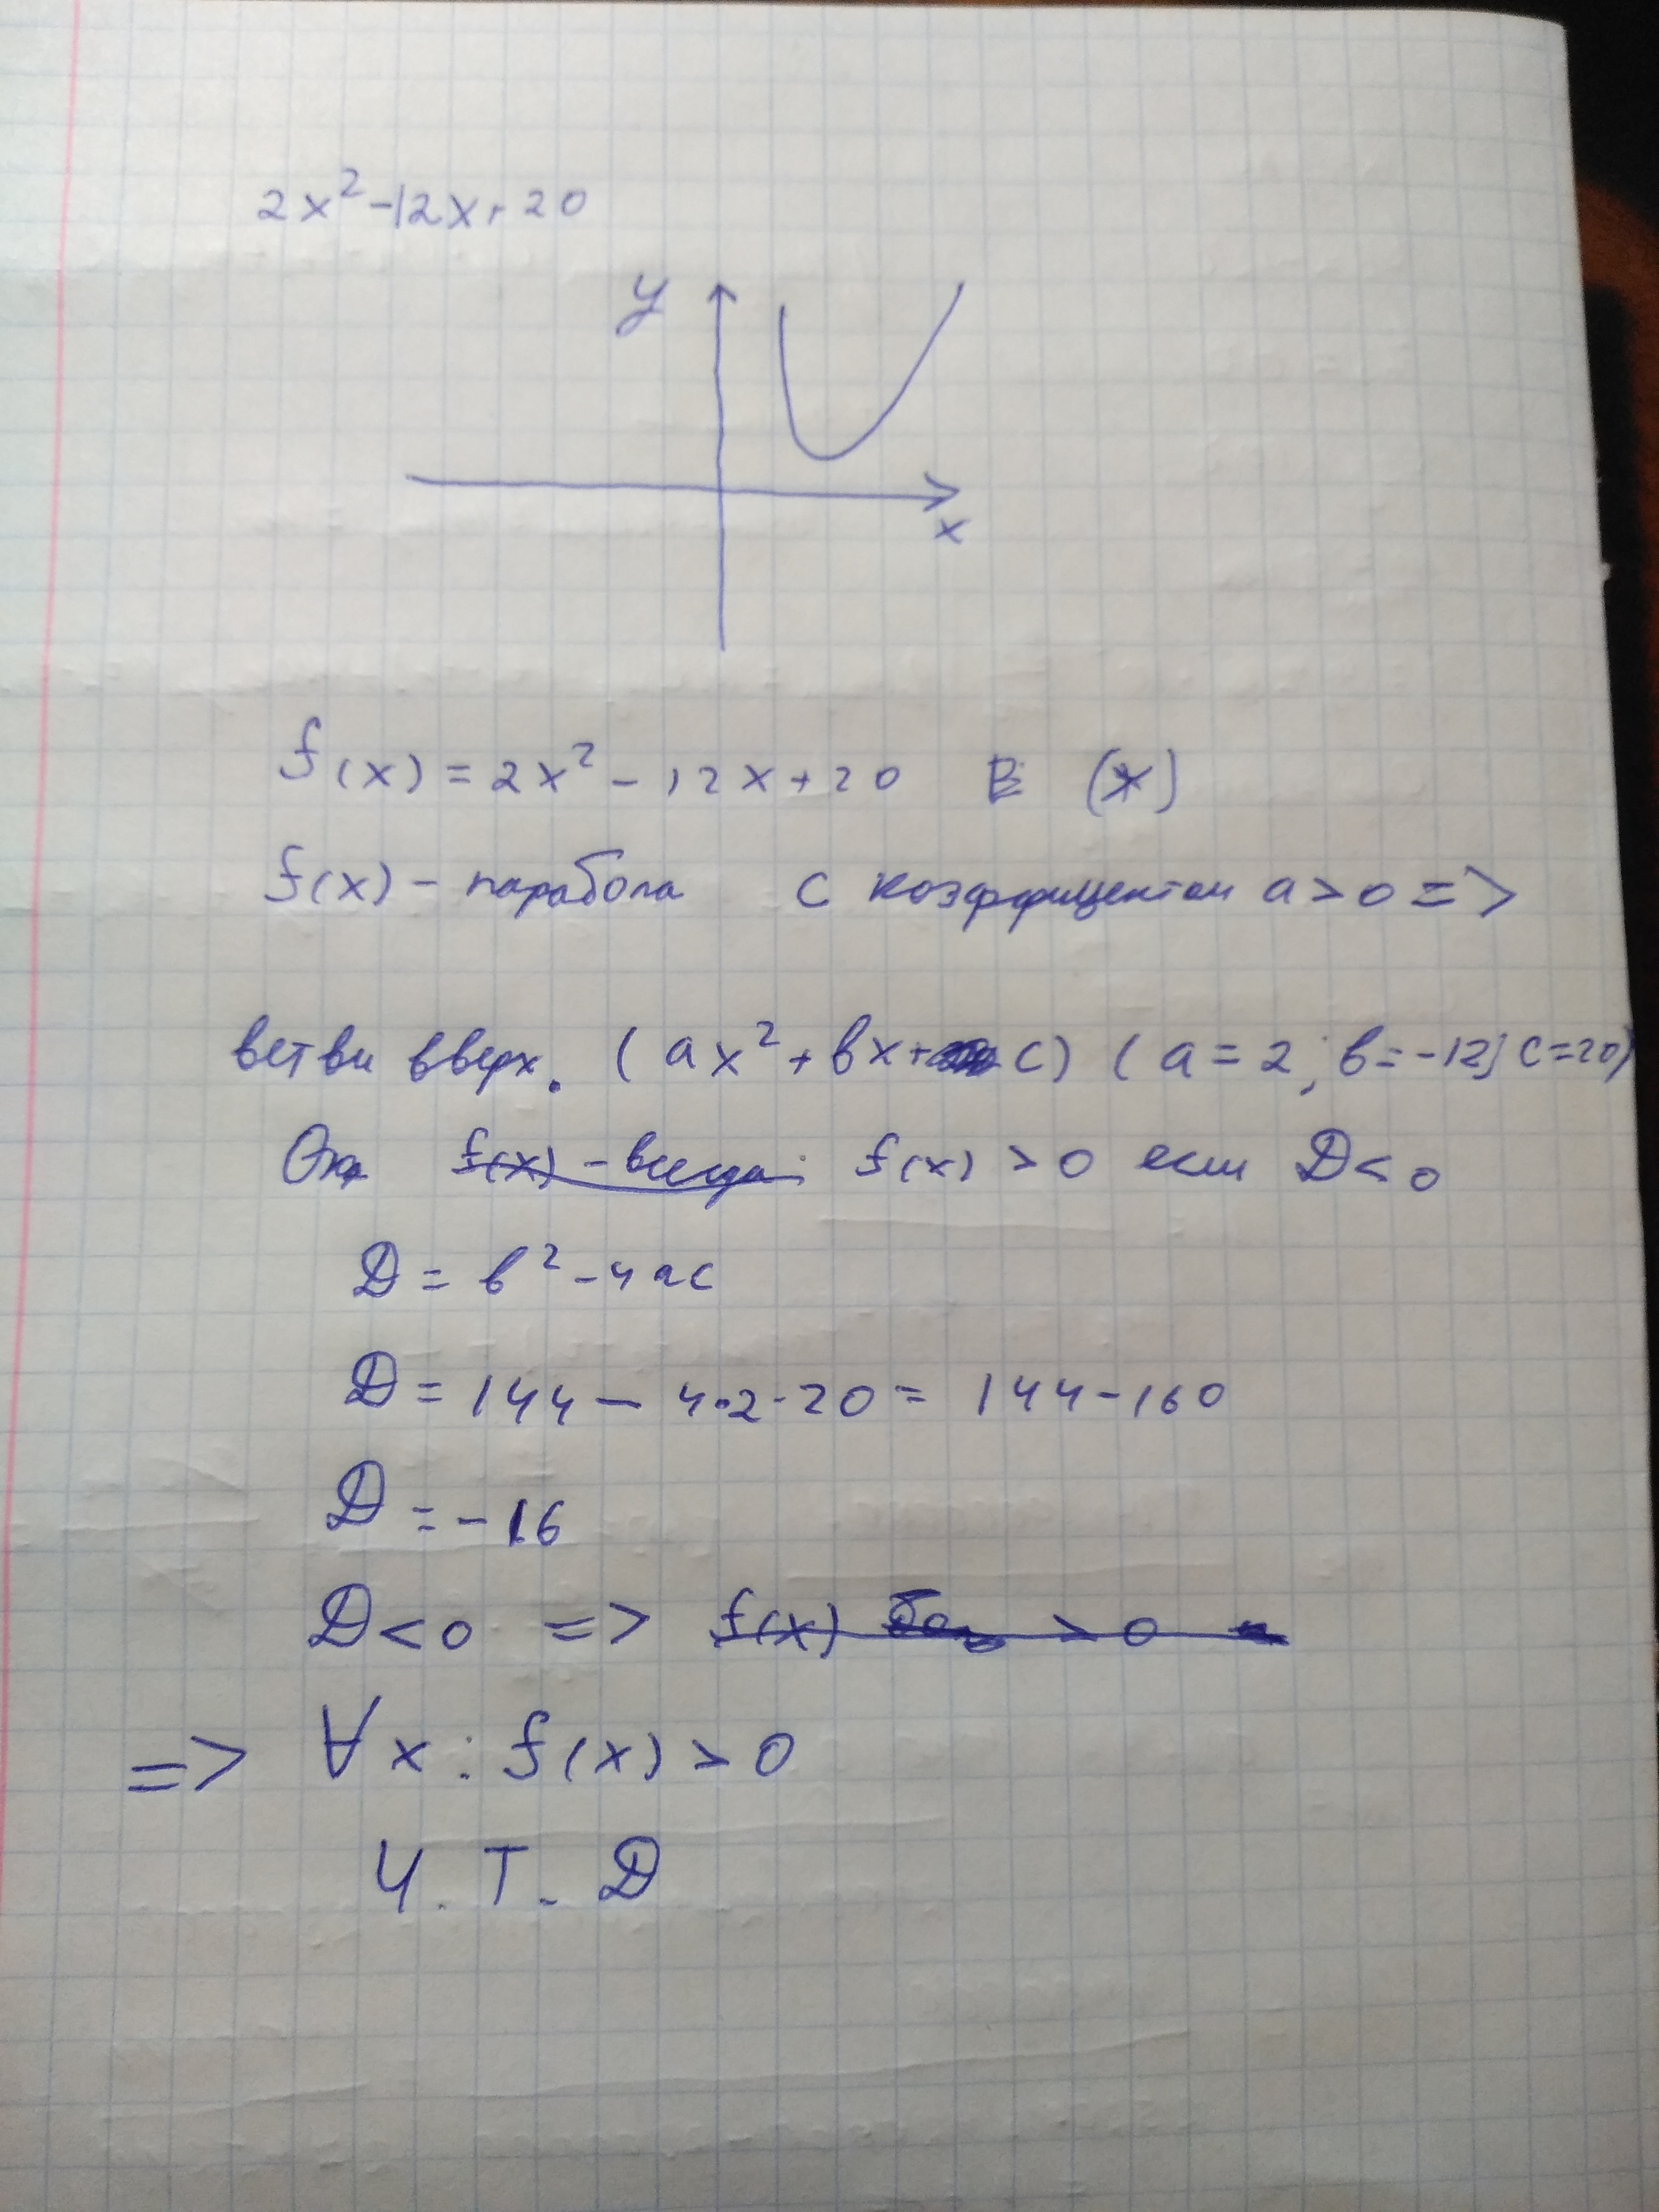 2x²-12x+20
y
x
f(x) = 2x² - 12x + 20 (*)
f(x) - парабола с коэффицентом a > 0 =>
ветви вверх. (ax² + bx + c) (a = 2; b = -12; c = 20)
f(x) - всегда f(x) > 0 если D < 0
D = b² - 4ac
D = 144 - 4·2·20 = 144 - 160
D = -16
D < 0 => f(x) > 0
=> ∀x : f(x) > 0
Ч.Т.Д